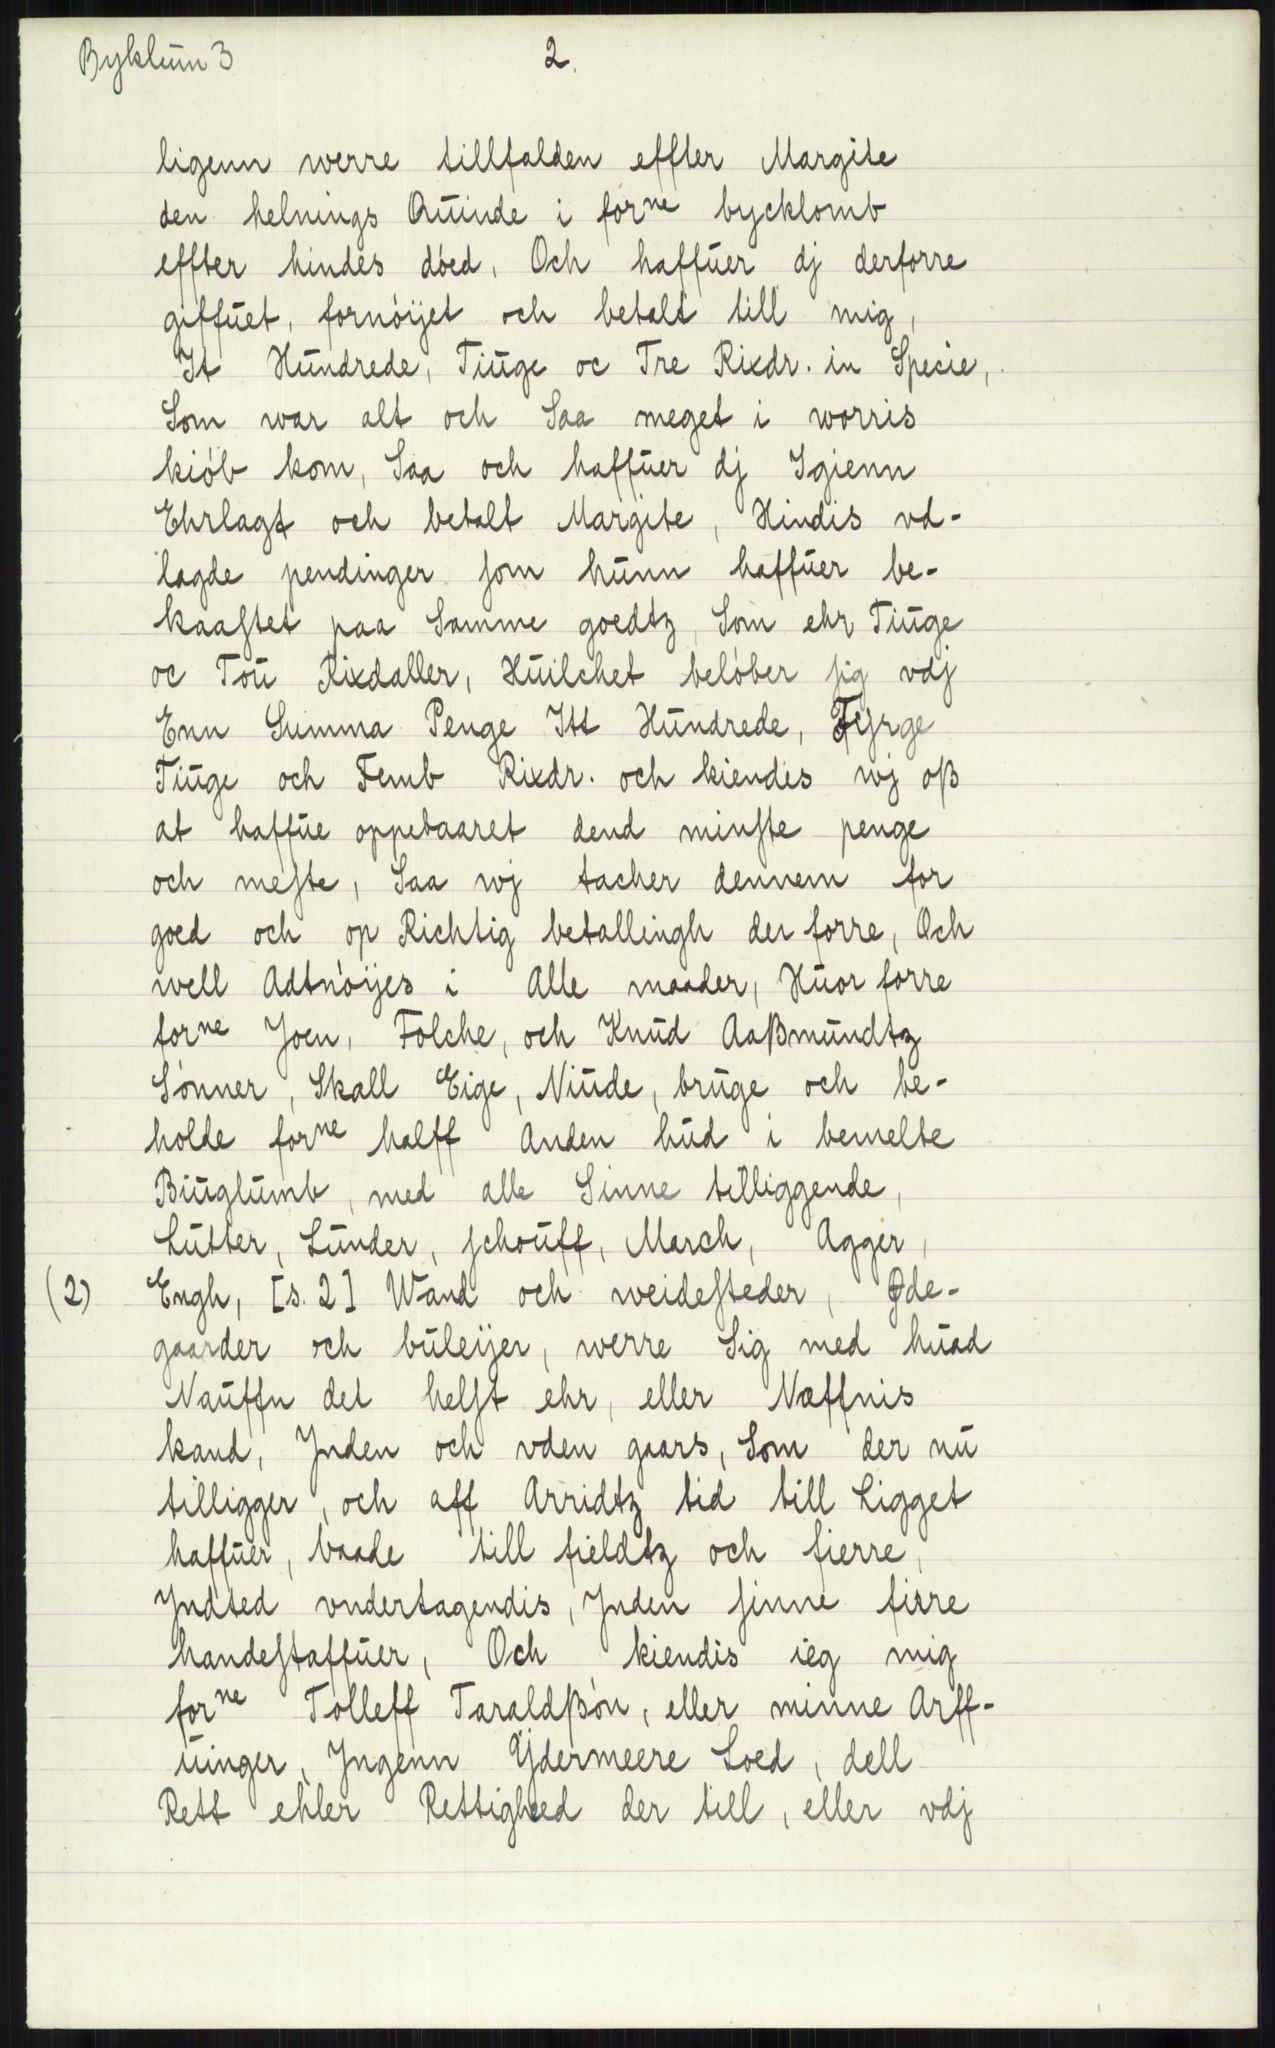 Byklum 3
2.
ligenn werre tillfalden effter Margite
den helnings Quinde i forne bycklomb
effter hindes dóed, Och haffuer dj derforre
giffuet, fornóijet och betalt till mig,
It Hundrede, Tiuge oc Tre Rixdr. in Specie,
Som war alt och Saa meget i worris
kiób kom, Saa och haffuer dj Igienn
Ehrlagt och betalt Margite, Hindis vd-
lagde pendinger som hunn haffuer be-
kaastet paa Samme goedtz, Som ehr Tiuge
oc Tou Rixdaller, Huilchet belóber sig vdj
Enn Summa Penge Itt Hundrede, Fyrge
Tiuge och Femb Rixdr. och kiendes wj oß
at haffue oppebaaret dend minste penge
och meste, Saa wj tacher dennem for
goed och op Richtig betallingh der forre, Och
well Adtnóijes i Alle maader, Huor forre
forne Joen, Folche, och Knud Aaßmundtz
Sónner, Skall Eige, Niude, bruge och be-
holde forne halff Anden hud i bemelte
Biuglumb, med alle Sinne tilliggende,
Lutter, Lunder, schouff, March, Agger,
(2) Engh, [s. 2] Wand och weidesteder, Øde-
gaarder och buleijer, werre Sig med huad
Nauffn det helst ehr, eller Næffnis
kand, Jnden och vden gaars, Som der nu
tilligger, och aff Arridtz tid till Ligget
haffuer, baade till fieldtz och fierre,
Jndted vndertagendis, Jnden sinne fisre
handestaffuer, Och kiendis ieg mig
forne Tolleff Taraldßón, eller minne Arff-
uinger, Jngenn Ÿdermeere Loed, dell
Rett ehler Rettigheed der till, eller vdj